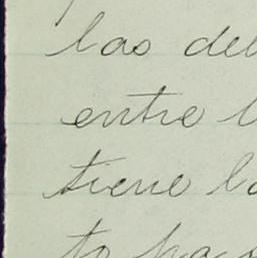 las del
entre l
tiene la
to pa